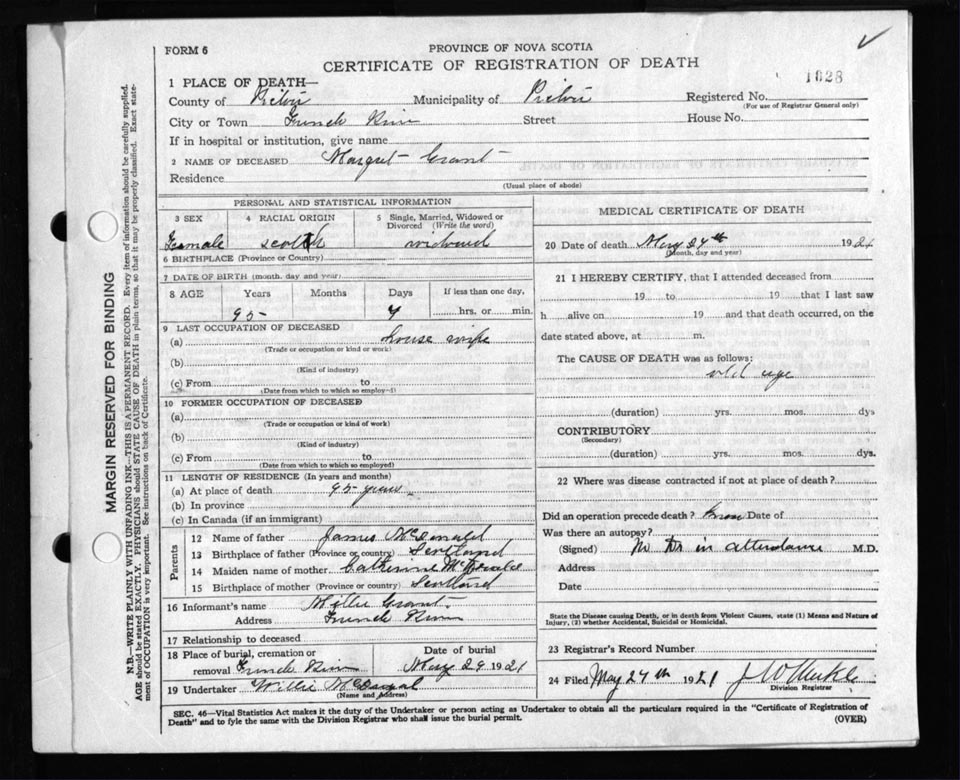 FORM 6
PROVINCE OF NOVA SCOTIA
CERTIFICATE OF REGISTRATION OF DEATH
1628
1 PLACE OF DEATH—
County of Pictou Municipality of Pictou Registered No.
(For use of Registrar General only)
City or Town French River Street House No.
If in hospital or institution, give name
2 NAME OF DECEASED Margret Grant
Residence
(Usual place of abode)
PERSONAL AND STATISTICAL INFORMATION
3 SEX 4 RACIAL ORIGIN 5 Single, Married, Widowed or Divorced (Write the word)
Female scotch widowed
6 BIRTHPLACE (Province or Country)
7 DATE OF BIRTH (month, day and year)
8 AGE Years Months Days If less than one day,
95 hrs. or min.
9 LAST OCCUPATION OF DECEASED
(a) house wife
(Trade or occupation or kind or work)
(b)
(Kind of industry)
(c) From to
(Date from which to which so employ-d)
10 FORMER OCCUPATION OF DECEASED
(a)
(Trade or occupation or kind of work)
(b)
(Kind of industry)
(c) From to
(Date from which to which so employed)
11 LENGTH OF RESIDENCE (In years and months)
(a) At place of death 95 years
(b) In province
(c) In Canada (if an immigrant)
Parents
12 Name of father James McDonald
13 Birthplace of father (Province or country) Scotland
14 Maiden name of mother Catherine McDonald
15 Birthplace of mother (Province or country) Scotland
16 Informant's name Grant
Address French River
17 Relationship to deceased
18 Place of burial, cremation or removal French River
Date of burial
May 29 1921
19 Undertaker Willie
(Name and Address)
MEDICAL CERTIFICATE OF DEATH
20 Date of death May 27th 1921
(Month, day and year)
21 I HEREBY CERTIFY, that I attended deceased from
19 to 19 that I last saw
h alive on 19 and that death occurred, on the
date stated above, at m.
The CAUSE OF DEATH was as follows:
old age
(duration) yrs. mos. dys
CONTRIBUTORY
(Secondary)
(duration) yrs. mos. dys.
22 Where was disease contracted if not at place of death?
Did an operation precede death? Date of
Was there an autopsy?
(Signed) No Dr in attendance M.D.
Address
Date
State the Disease causing Death, or in death from Violent Causes, state (1) Means and Nature of
Injury, (2) whether Accidental, Suicidal or Homicidal.
23 Registrar's Record Number
24 Filed May 27th 1921 J W
Division Registrar
SEC. 46—Vital Statistics Act makes it the duty of the Undertaker or person acting as Undertaker to obtain all the particulars required in the "Certificate of Registration of
Death" and to fyle the same with the Division Registrar who shall issue the burial permit.
(OVER)
MARGIN RESERVED FOR BINDING
N.B.—WRITE PLAINLY WITH UNFADING INK—THIS IS A PERMANENT RECORD. Every item of information should be carefully supplied.
AGE should be stated EXACTLY. PHYSICIANS should STATE CAUSE OF DEATH in plain terms, so that it may be properly classified. Exact state-
ment of OCCUPATION is very important. See instructions on back of Certificate.